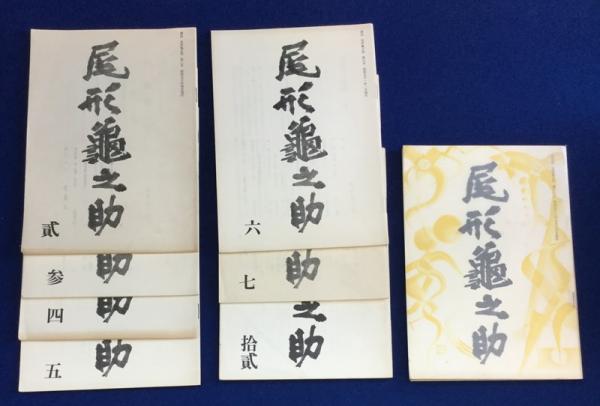 尾形龜之助
貳
助
参
助
四
助
五
尾形龜之助
六
助
七
之助
拾貳
尾形龜之助